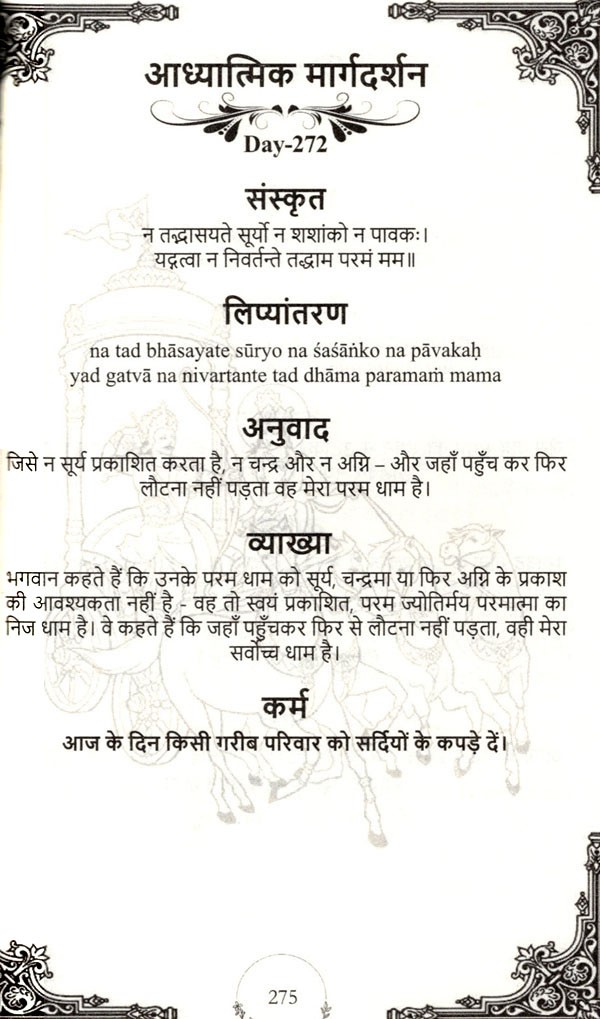 आध्यात्मिक मार्गदर्शन
Day-272
संस्कृत
न तद्भासयते सूर्यो न शशांको न पावकः।
यद्गत्वा न निवर्तन्ते तद्धाम परमं मम॥
लिप्यांतरण
na tad bhāsayate sūryo na śaśāṅko na pāvakaḥ
yad gatvā na nivartante tad dhāma paramaṁ mama
अनुवाद
जिसे न सूर्य प्रकाशित करता है, न चन्द्र और न अग्नि – और जहाँ पहुँच कर फिर
लौटना नहीं पड़ता वह मेरा परम धाम है।
व्याख्या
भगवान कहते हैं कि उनके परम धाम को सूर्य, चन्द्रमा या फिर अग्नि के प्रकाश
की आवश्यकता नहीं है - वह तो स्वयं प्रकाशित, परम ज्योतिर्मय परमात्मा का
निज धाम है। वे कहते हैं कि जहाँ पहुँचकर फिर से लौटना नहीं पड़ता, वही मेरा
सर्वोच्च धाम है।
कर्म
आज के दिन किसी गरीब परिवार को सर्दियों के कपड़े दें।
275